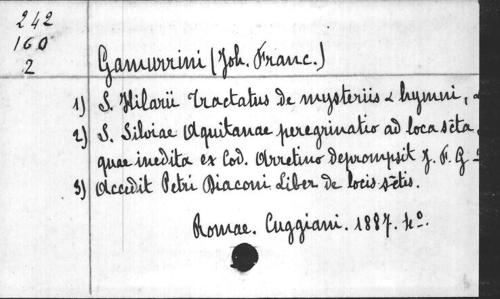 242
160
2
Gamurrini (Joh. Franc.)
1) S. Hilarii Tractatus de mysteriis & hymni,
2) S. Silviae Aquitanae peregrinatio ad loca scta,
quae inedita ex Cod. Arretino deprompsit J. F. G
3) Accedit Petri Diaconi Liber de locis sctis.
Romae. Cuggiani. 1887. 4o.